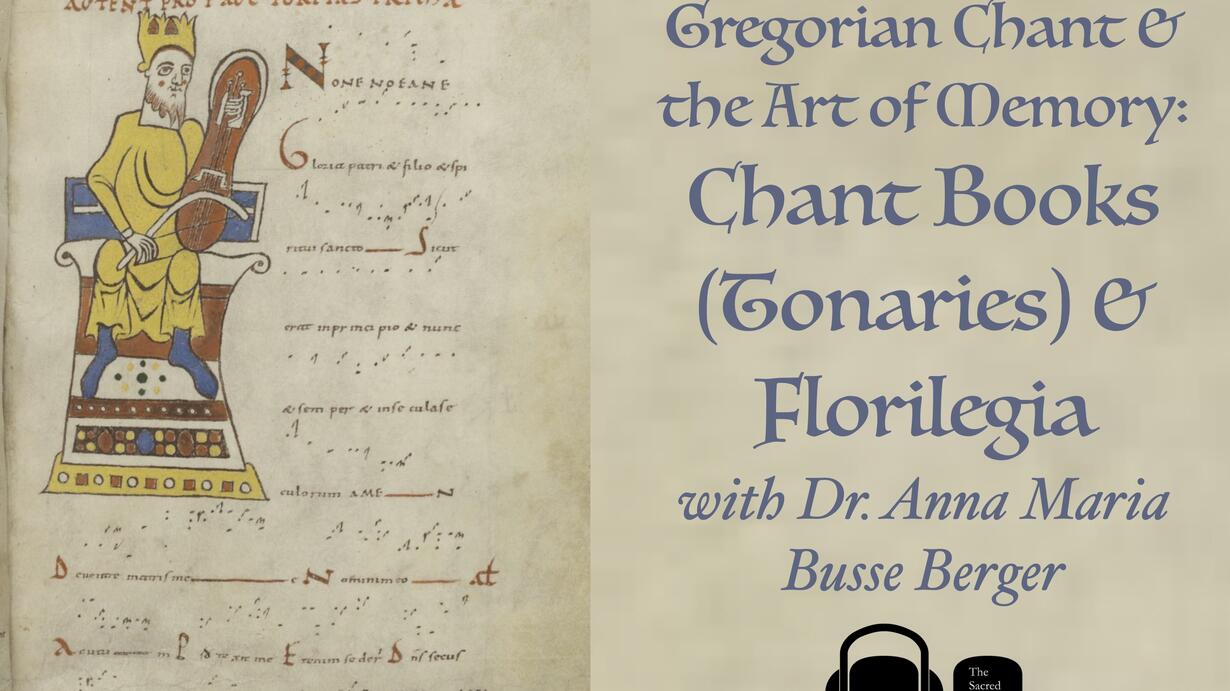 AUTENT PRO
N
ONE NOEANE
Gloria patri & filio & spi
ritui sancto Sicut
erat inprincipio & nunc
& sem per & inse culase
culorum AME N
D euentre matris me e N omini meo
A E Dns secus
Gregorian Chant &
the Art of Memory:
Chant Books
(Tonaries) &
Florilegia
with Dr. Anna Maria
Busse Berger
The
Sacred